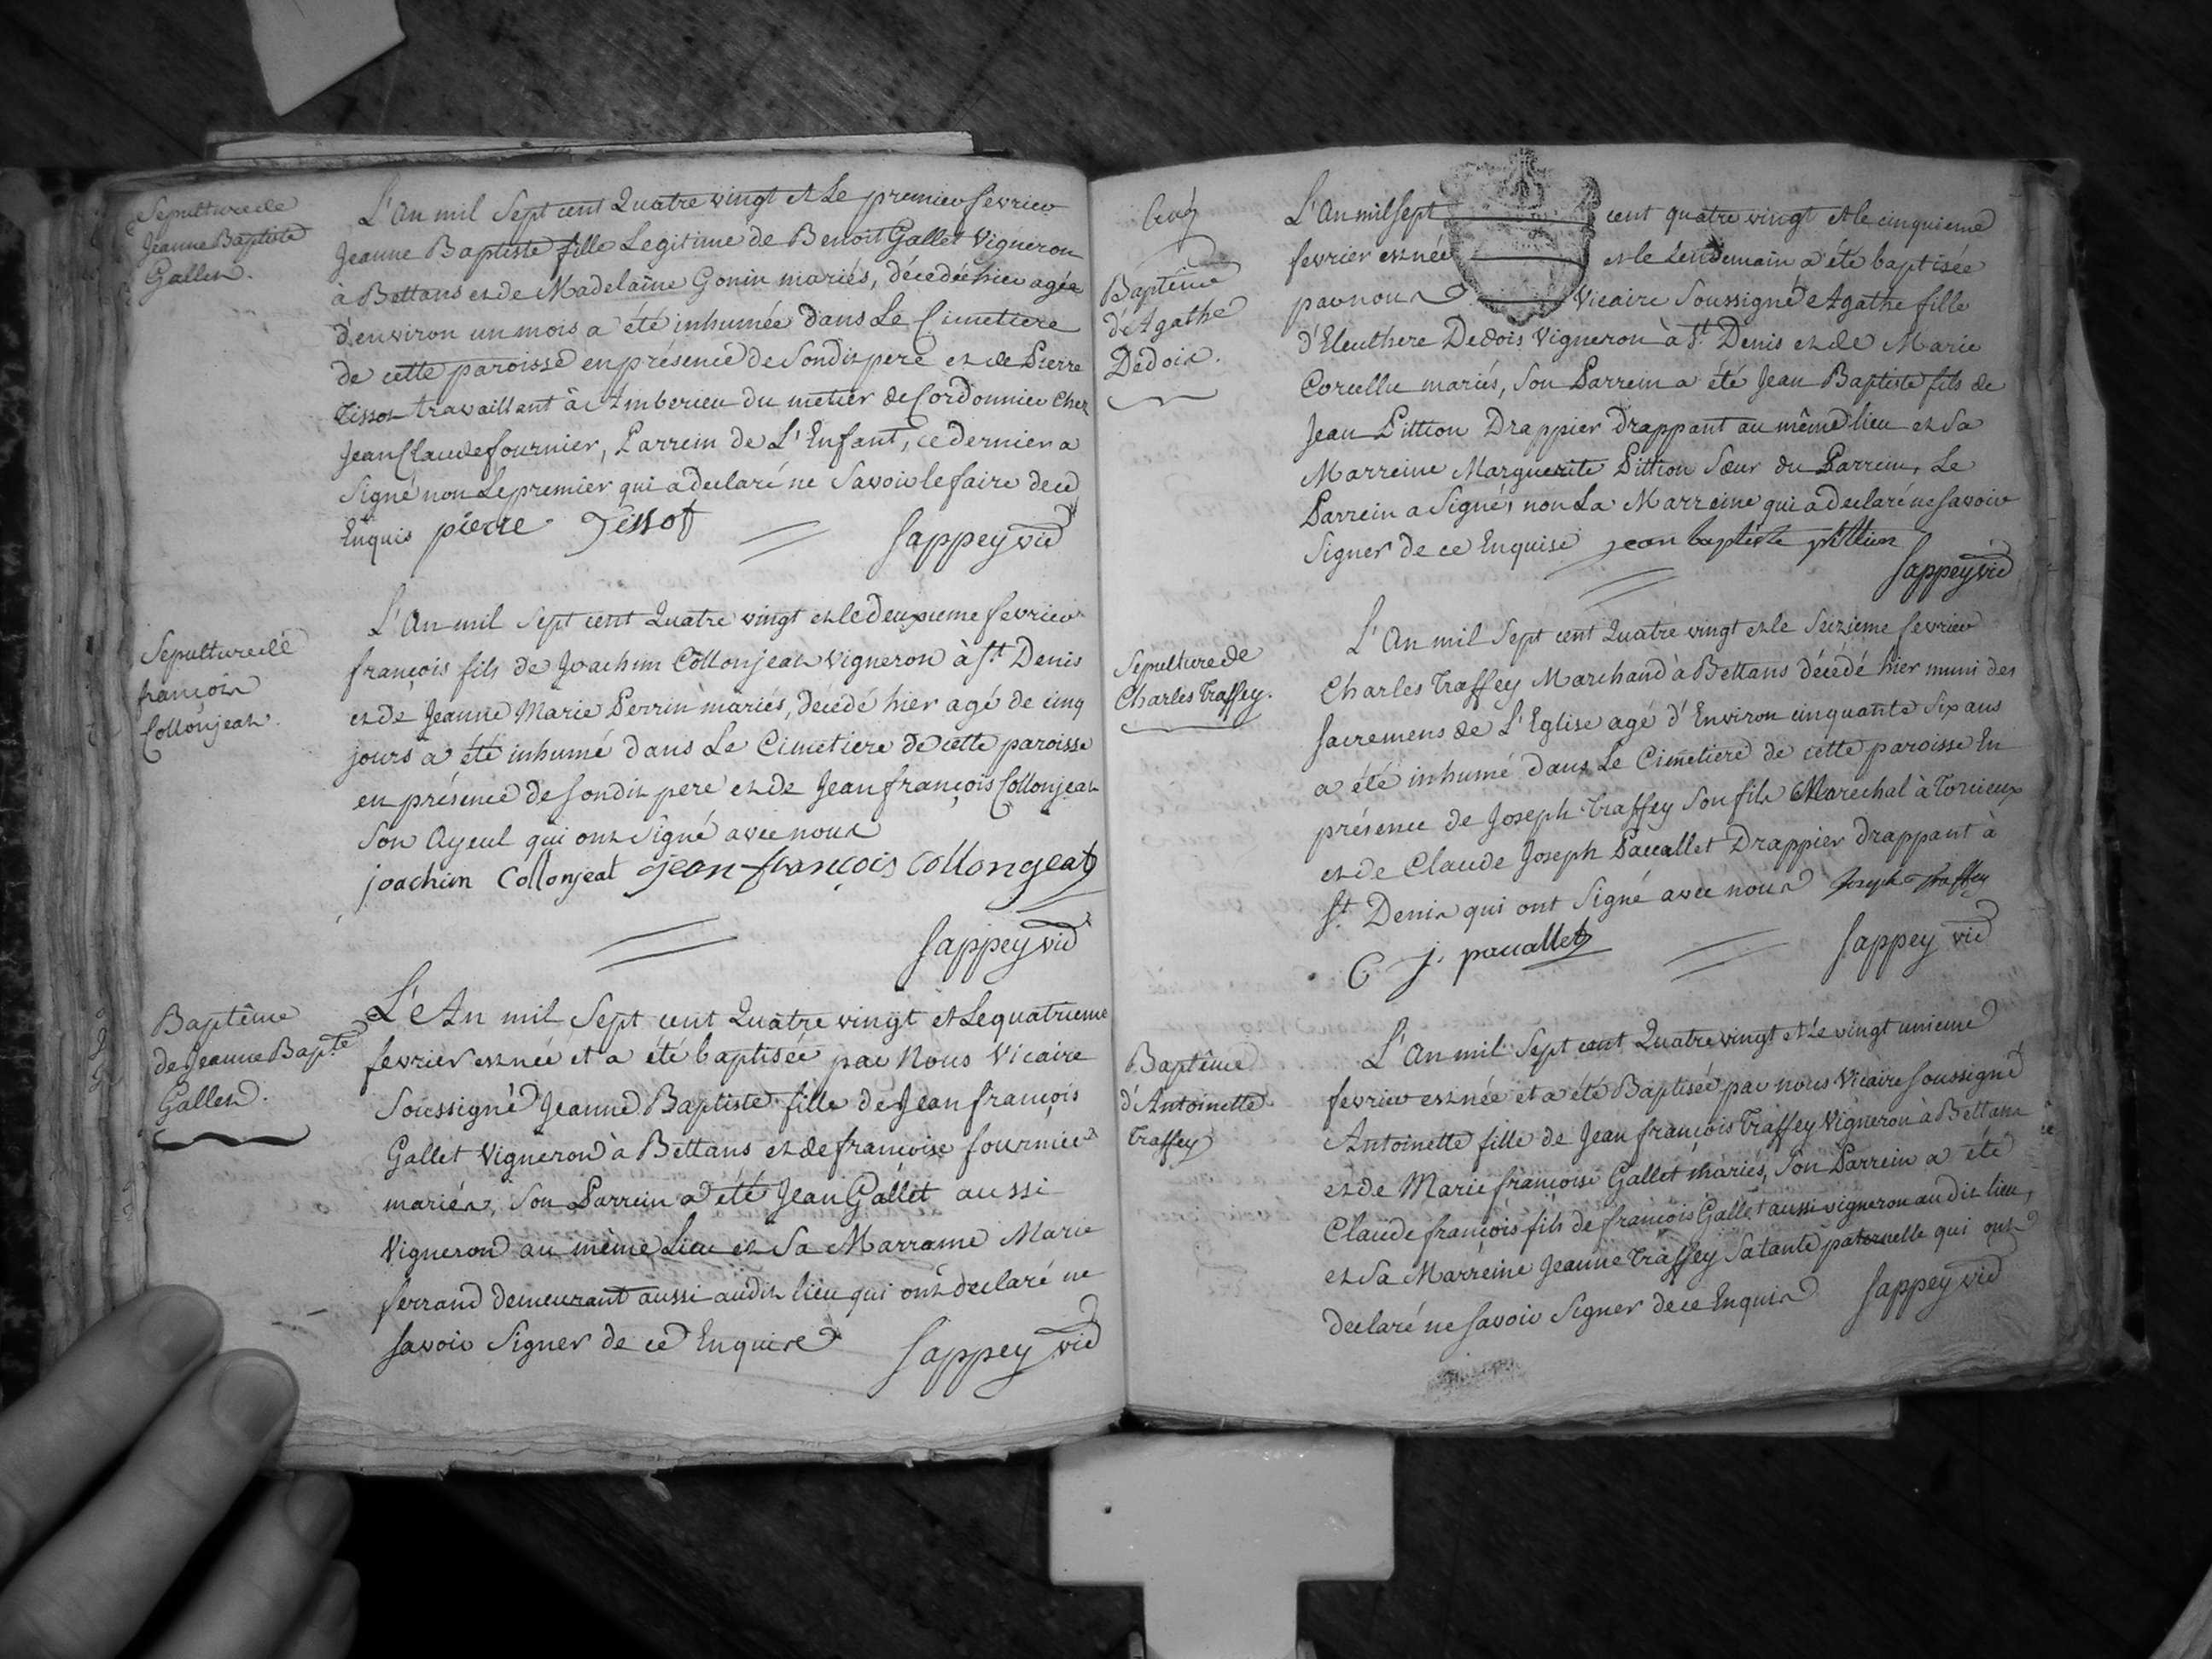 Sepulture de
Jeanne Baptiste
Gallet.
L'An mil Sept cent Quatre vingt et Le premier fevrier
Jeanne Baptiste fille Legitime de Benoit Gallet Vigneron
à Bettans et de Madelaine Gonin mariés, décedée hier agée
d'environ un mois a été inhumée dans Le Cimetiere
de cette paroisse en présence de Sondit pere et de Pierre
Tissot travaillant à Amberieu du metier de Cordonnier Chez
Jean Claude fournier, Parrein de L'Enfant, ce dernier a
Signé non Le premier qui a declaré ne Savoir le faire de ce
Enquis pierre Tissot
Sappey vic
Sepulture de
françois
Collonjeat.
L'An mil Sept cent Quatre vingt et le deuxieme fevrier
françois fils de Joachim Collonjeat vigneron à St Denis
et de Jeanne Marie Perrin mariés, décédé hier agé de cinq
jours a été inhumé dans Le Cimetiere de cette paroisse
en présence de Sondit pere et de Jean françois Collonjeat
Son Ayeul qui ont Signé avec nous
joachim Collonjeat jean-françois Collongeat
Sappey vic
Baptême
de Jeanne Bapte
Gallet.
L'An mil Sept cent Quatre vingt et Le quatrieme
fevrier est née et a été baptisée par Nous Vicaire
Soussigné Jeanne Baptiste fille de Jean françois
Gallet Vigneron à Bettans et de françoise fournier
mariés, Son Parrein a été Jean Gallet aussi
Vigneron au même Lieu et Sa Marraine Marie
ferrand demeurant aussi audit lieu qui ont declaré ne
Savoir Signer de ce Enquis
Sappey vic
Baptême
d'Agathe
Dedois.
L'An mil Sept cent quatre vingt et le cinquieme
fevrier est née et le Lendemain a été baptisée
par nous Vicaire Soussigné Agathe fille
d'Eleuthere Dedois Vigneron à St Denis et de Marie
Corcellu mariés, Son Parrein a été Jean Baptiste fils de
Jean Pittion Drappier drappant au même lieu et Sa
Marreine Marguerite Pittion Sœur du Parrein, Le
Parrein a Signé, non La Marreine qui a declaré ne Savoir
Signer de ce Enquise jean baptiste pittion
Sappey vic
Sepulture de
Charles Traffey.
L'An mil Sept cent Quatre vingt et le Seizieme fevrier
Charles Traffey Marchand à Bettans décédé hier muni des
Sacremens de L'Eglise agé d'Environ cinquante Six ans
a été inhumé dans Le Cimetiere de cette paroisse En
présence de Joseph Traffey Son fils Marechal à Torcieux
et de Claude Joseph Paccallet Drappier drappant à
St Denis qui ont Signé avec nous Joseph Traffey
C j. paccallet
Sappey vic
Baptême
d'Antoinette
Traffey
L'An mil Sept cent Quatre vingt et Le vingt unieme
fevrier est née et a été Baptisée par nous Vicaire Soussigné
Antoinette fille de Jean françois Traffey Vigneron à Bettans
et de Marie françoise Gallet mariés, Son Parrein a été
Claude françois fils de françois Gallet aussi vigneron audit lieu,
et Sa Marreine Jeanne Traffey Sa tante paternelle qui ont
declaré ne Savoir Signer de ce Enquis
Sappey vic